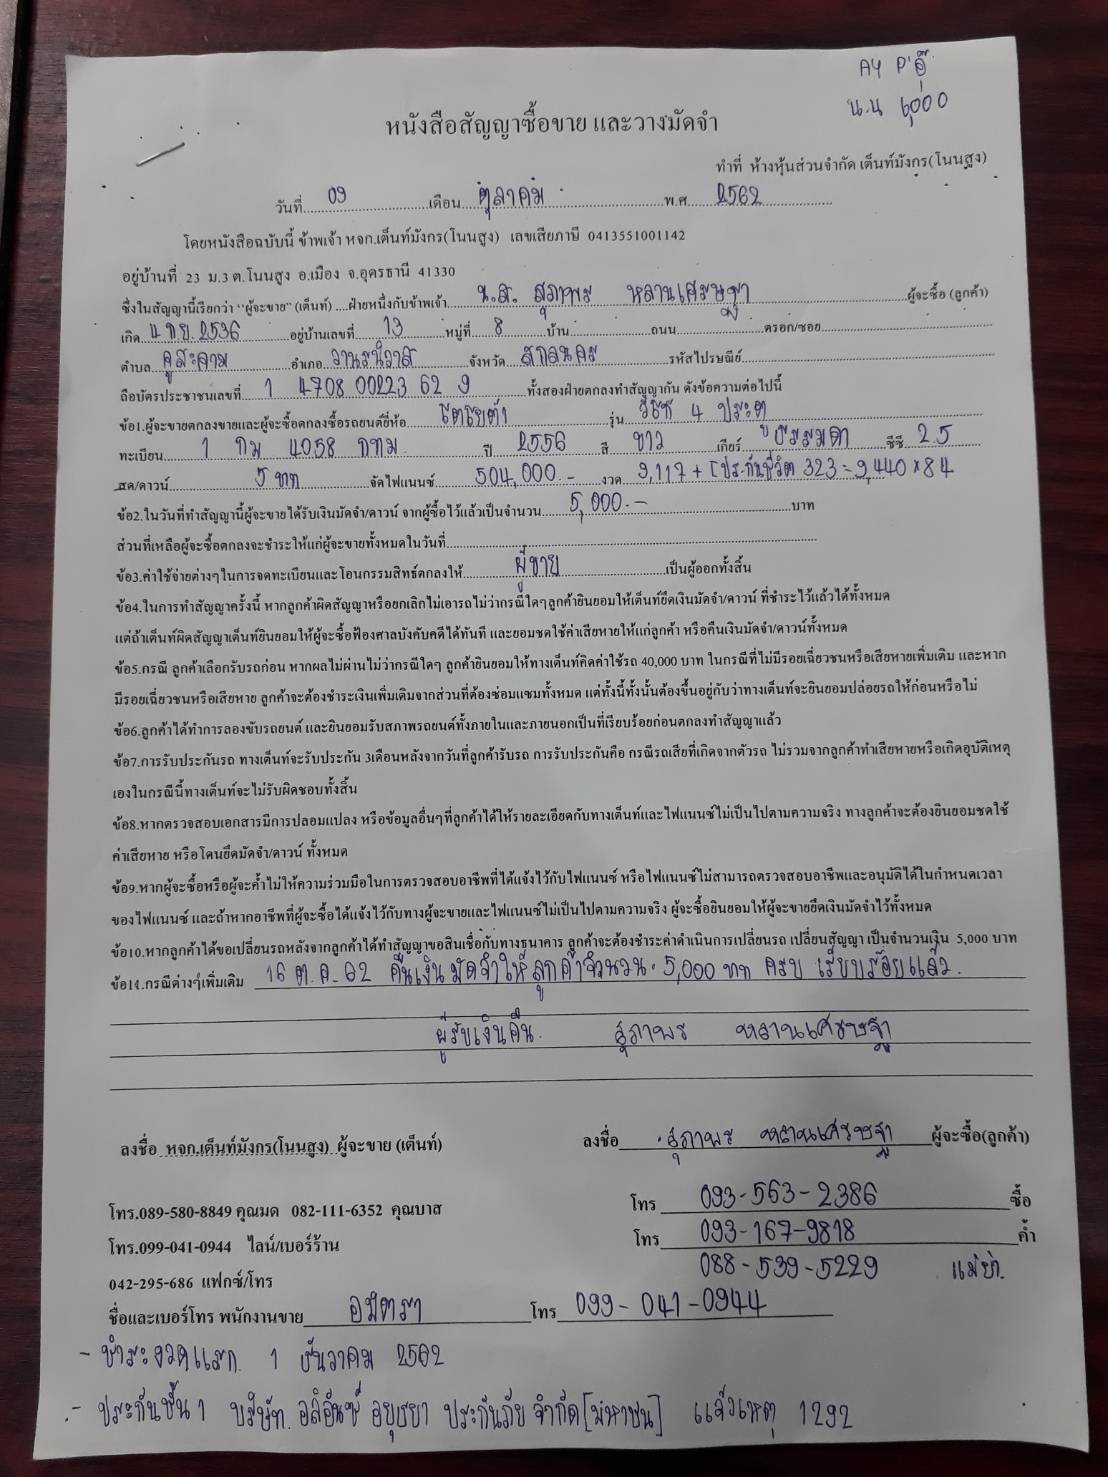 AY P'อู๊
น.น 6,000
หนังสือสัญญาซื้อขาย และวางมัดจำ
ทำที่ ห้างหุ้นส่วนจำกัด เต็นท์มังกร(โนนสูง)
วันที่ 09 เดือน ตุลาคม พ.ศ. 2562
โดยหนังสือฉบับนี้ ข้าพเจ้า หจก.เต็นท์มังกร(โนนสูง) เลขเสียภาษี 0413551001142
อยู่บ้านที่ 23 ม.3 ต.โนนสูง อ.เมือง จ.อุดรธานี 41330
ซึ่งในสัญญานี้เรียกว่า "ผู้จะขาย" (เต็นท์) ....ฝ่ายหนึ่งกับข้าพเจ้า น.ส. สุภาพร หลานเศรษฐา ผู้จะซื้อ (ลูกค้า)
เกิด 4 ก.ย. 2536 อยู่บ้านเลขที่ 13 หมู่ที่ 8 บ้าน ถนน ตรอก/ซอย
ตำบล คูสะคาม อำเภอ วานรนิวาส จังหวัด สกลนคร รหัสไปรษณีย์
ถือบัตรประชาชนเลขที่ 1 4708 00223 62 9 ทั้งสองฝ่ายตกลงทำสัญญากัน ดังข้อความต่อไปนี้
ข้อ1.ผู้จะขายตกลงขายและผู้จะซื้อตกลงซื้อรถยนต์ยี่ห้อ โตโยต้า รุ่น วีโก้ 4 ประตู
ทะเบียน 1 กม 4058 กทม ปี 2556 สี ขาว เกียร์ ธรรมดา ซีซี 2.5
สด/ดาวน์ 5 บาท จัดไฟแนนซ์ 504,000.- งวด 9,117 + [ประกันชีวิต 323 = 9,440 × 84
ข้อ2.ในวันที่ทำสัญญานี้ผู้จะขายได้รับเงินมัดจำ/ดาวน์ จากผู้ซื้อไว้แล้วเป็นจำนวน 5,000.- บาท
ส่วนที่เหลือผู้จะซื้อตกลงจะชำระให้แก่ผู้จะขายทั้งหมดในวันที่
ข้อ3.ค่าใช้จ่ายต่างๆในการจดทะเบียนและโอนกรรมสิทธ์ตกลงให้ ผู้ขาย เป็นผู้ออกทั้งสิ้น
ข้อ4.ในการทำสัญญาครั้งนี้ หากลูกค้าผิดสัญญาหรือยกเลิกไม่เอารถไม่ว่ากรณีใดๆลูกค้ายินยอมให้เต็นท์ยึดเงินมัดจำ/ดาวน์ ที่ชำระไว้แล้วได้ทั้งหมด
แต่ถ้าเต็นท์ผิดสัญญาเต็นท์ยินยอมให้ผู้จะซื้อฟ้องศาลบังคับคดีได้ทันที และยอมชดใช้ค่าเสียหายให้แก่ลูกค้า หรือคืนเงินมัดจำ/ดาวน์ทั้งหมด
ข้อ5.กรณี ลูกค้าเลือกรับรถก่อน หากผลไม่ผ่านไม่ว่ากรณีใดๆ ลูกค้ายินยอมให้ทางเต็นท์คิดค่าใช้รถ 40,000 บาท ในกรณีที่ไม่มีรอยเฉี่ยวชนหรือเสียหายเพิ่มเติม และหาก
มีรอยเฉี่ยวชนหรือเสียหาย ลูกค้าจะต้องชำระเงินเพิ่มเติมจากส่วนที่ต้องซ่อมแซมทั้งหมด แต่ทั้งนี้ทั้งนั้นต้องขึ้นอยู่กับว่าทางเต็นท์จะยินยอมปล่อยรถให้ก่อนหรือไม่
ข้อ6.ลูกค้าได้ทำการลองขับรถยนต์ และยินยอมรับสภาพรถยนต์ทั้งภายในและภายนอกเป็นที่เรียบร้อยก่อนตกลงทำสัญญาแล้ว
ข้อ7.การรับประกันรถ ทางเต็นท์จะรับประกัน 3เดือนหลังจากวันที่ลูกค้ารับรถ การรับประกันคือ กรณีรถเสียที่เกิดจากตัวรถ ไม่รวมจากลูกค้าทำเสียหายหรือเกิดอุบัติเหตุ
เองในกรณีนี้ทางเต็นท์จะไม่รับผิดชอบทั้งสิ้น
ข้อ8.หากตรวจสอบเอกสารมีการปลอมแปลง หรือข้อมูลอื่นๆที่ลูกค้าได้ให้รายละเอียดกับทางเต็นท์และไฟแนนซ์ไม่เป็นไปตามความจริง ทางลูกค้าจะต้องยินยอมชดใช้
ค่าเสียหาย หรือโดนยึดมัดจำ/ดาวน์ ทั้งหมด
ข้อ9.หากผู้จะซื้อหรือผู้จะค้ำไม่ให้ความร่วมมือในการตรวจสอบอาชีพที่ได้แจ้งไว้กับไฟแนนซ์ หรือไฟแนนซ์ไม่สามารถตรวจสอบอาชีพและอนุมัติได้ในกำหนดเวลา
ของไฟแนนซ์ และถ้าหากอาชีพที่ผู้จะซื้อได้แจ้งไว้กับทางผู้จะขายและไฟแนนซ์ไม่เป็นไปตามความจริง ผู้จะซื้อยินยอมให้ผู้จะขายยึดเงินมัดจำไว้ทั้งหมด
ข้อ10.หากลูกค้าได้ขอเปลี่ยนรถหลังจากลูกค้าได้ทำสัญญาขอสินเชื่อกับทางธนาคาร ลูกค้าจะต้องชำระค่าดำเนินการเปลี่ยนรถ เปลี่ยนสัญญา เป็นจำนวนเงิน 5,000 บาท
ข้อ11.กรณีต่างๆเพิ่มเติม 16 ต.ค. 62 คืนเงินมัดจำให้ลูกค้าจำนวน 5,000 บาท ครบ เรียบร้อยแล้ว.
ผู้รับเงินคืน. สุภาพร หลานเศรษฐา
ลงชื่อ หจก.เต็นท์มังกร(โนนสูง) ผู้จะขาย (เต็นท์) ลงชื่อ สุภาพร หลานเศรษฐา ผู้จะซื้อ(ลูกค้า)
โทร.089-580-8849 คุณมด 082-111-6352 คุณบาส โทร 093-563-2386 ซื้อ
โทร.099-041-0944 ไลน์/เบอร์ร้าน โทร 093-167-9818 ค้ำ
088-539-5229 แม่ย่า.
042-295-686 แฟกซ์/โทร
ชื่อและเบอร์โทร พนักงานขาย อมิตรา โทร 099-041-0944
- ชำระงวดแรก. 1 ธันวาคม 2562
- ประกันชั้น 1 บริษัท. อลิอันซ์ อยุธยา ประกันภัย จำกัด [มหาชน] แจ้งเหตุ 1292